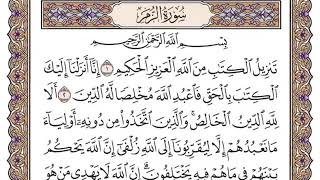 سُورَةُ الزُّمَرِ
بِسْمِ اللَّهِ الرَّحْمَٰنِ الرَّحِيمِ
تَنزِيلُ الْكِتَٰبِ مِنَ اللَّهِ الْعَزِيزِ الْحَكِيمِ ١ إِنَّا أَنزَلْنَا إِلَيْكَ
الْكِتَٰبَ بِالْحَقِّ فَاعْبُدِ اللَّهَ مُخْلِصًا لَّهُ الدِّينَ ٢ أَلَا
لِلَّهِ الدِّينُ الْخَالِصُ وَالَّذِينَ اتَّخَذُوا مِن دُونِهِ أَوْلِيَاءَ
مَا نَعْبُدُهُمْ إِلَّا لِيُقَرِّبُونَا إِلَى اللَّهِ زُلْفَىٰ إِنَّ اللَّهَ يَحْكُمُ
بَيْنَهُمْ فِي مَا هُمْ فِيهِ يَخْتَلِفُونَ إِنَّ اللَّهَ لَا يَهْدِي مَنْ هُوَ